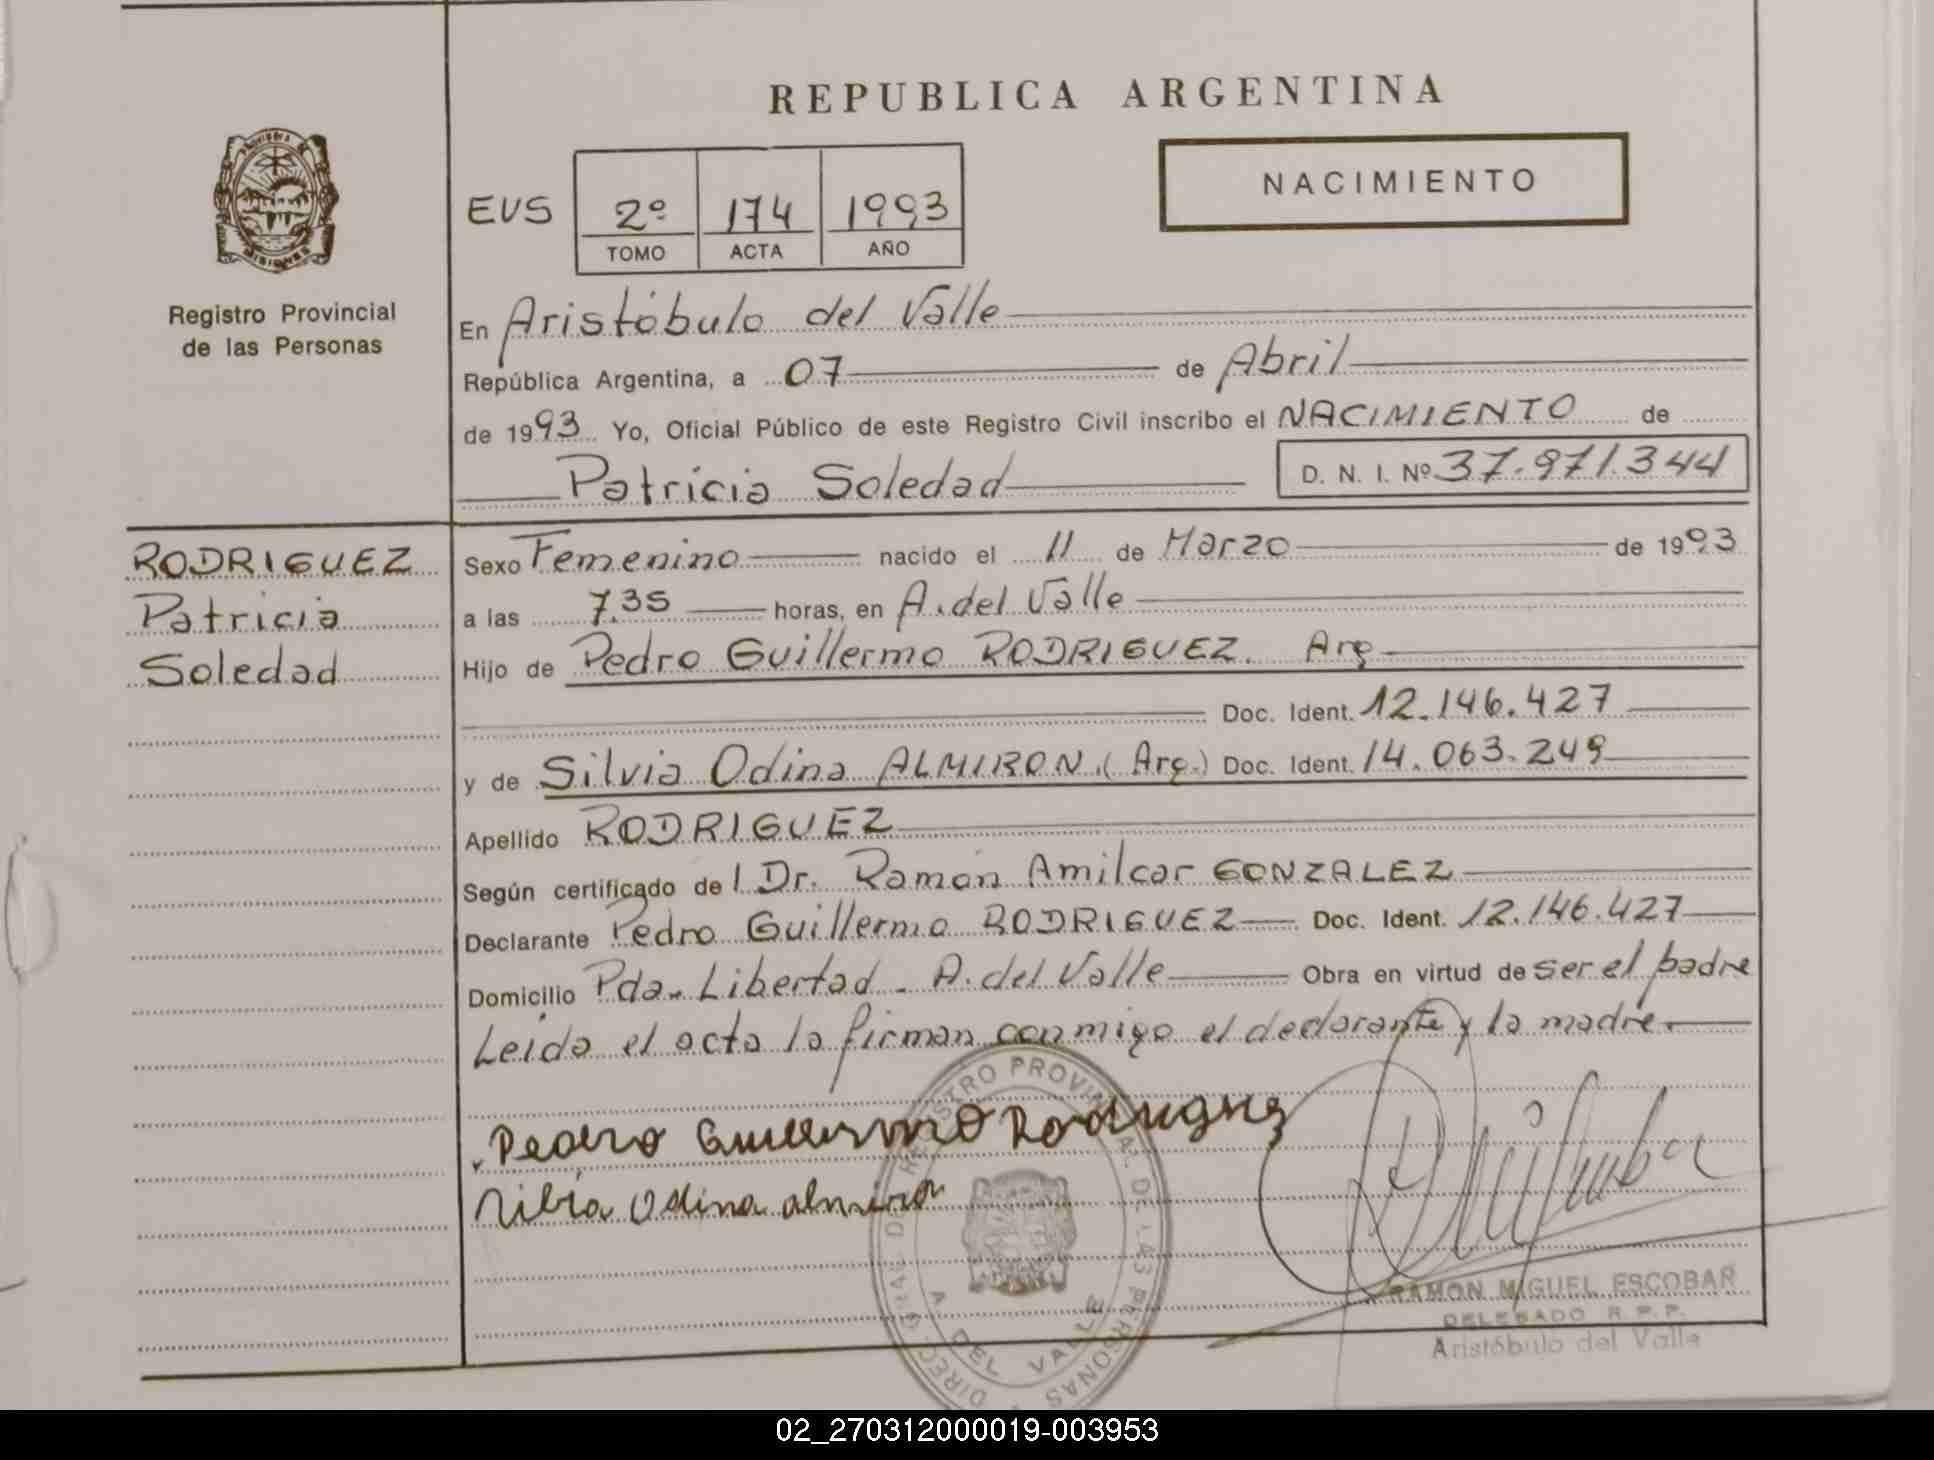 REPUBLICA ARGENTINA
NACIMIENTO
EUS 2º 174 1993
TOMO ACTA AÑO
Registro Provincial
de las Personas
En Aristóbulo del Valle
República Argentina, a 07 de Abril
de 1993 Yo, Oficial Público de este Registro Civil inscribo el NACIMIENTO de
Patricia Soledad D. N. I. Nº 37.971.344
RODRIGUEZ
Patricia
Soledad
Sexo Femenino nacido el 11 de Marzo de 1993
a las 7.35 horas, en A. del Valle
Hijo de Pedro Guillermo RODRIGUEZ. Arg
Doc. Ident. 12.146.427
y de Silvia Odina ALMIRON (Arg.) Doc. Ident. 14.063.249
Apellido RODRIGUEZ
Según certificado del Dr. Ramón Amilcar GONZALEZ
Declarante Pedro Guillermo RODRIGUEZ Doc. Ident. 12.146.427
Domicilio Pda. Libertad - A. del Valle Obra en virtud de ser el padre
Leida el acta la firman conmigo el declarante y la madre
Pedro Guillermo Rodriguez
Silvia Odina almiron
DIREC. GRAL. DEL REGISTRO PROVINCIAL DE LAS PERSONAS
A. DEL VALLE
RAMON MIGUEL ESCOBAR
DELEGADO R.P.P.
Aristóbulo del Valle
02_270312000019-003953